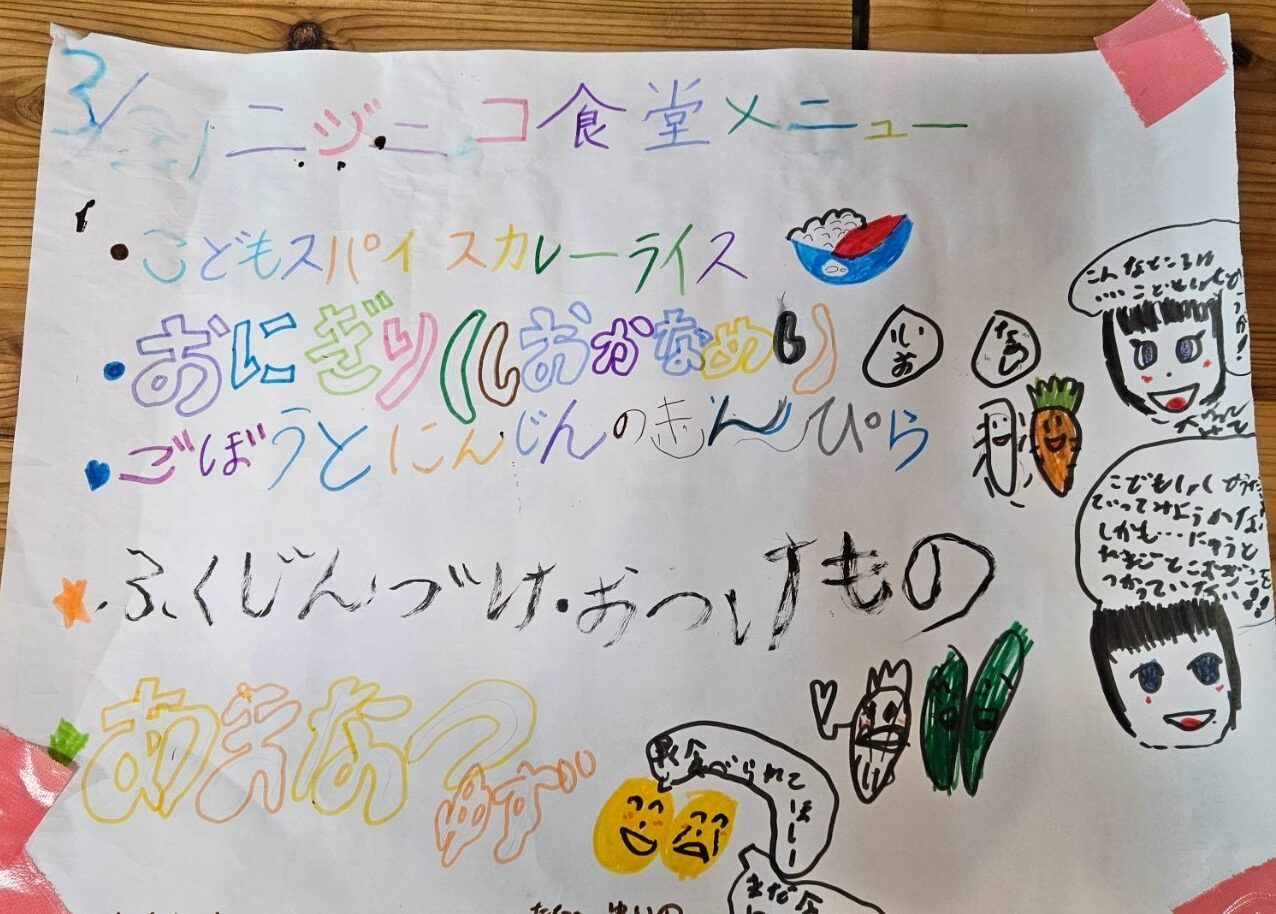 3/21 ニジニコ食堂メニュー
・こどもスパイスカレーライス
・おにぎり(しおかなめし)
しお
なめ
ごぼうとにんじんのきんぴら
こんなところに
・・・・こどもしょくどう
こどもしょくどうに
いってみようかな!
しかも…にゅうと
たまごとこむぎこを
つかっていない!!
ふくじんづけ・おつけもの
あまなつ
ゆず
食べられて
うれしー